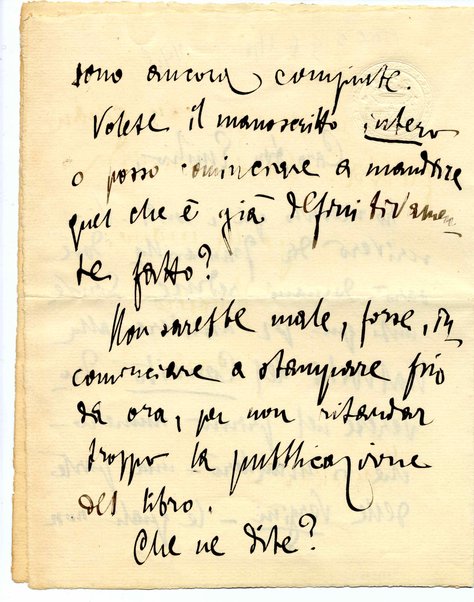 sono ancora compiute.
Volete il manoscritto intero
o posso cominciare a mandare
quel che è già definitivamen-
te fatto?
Non sarebbe male, forse, in
cominciare a stampare fino
da ora, per non ritardar
troppo la pubblicazione
del libro.
Che ne dite?